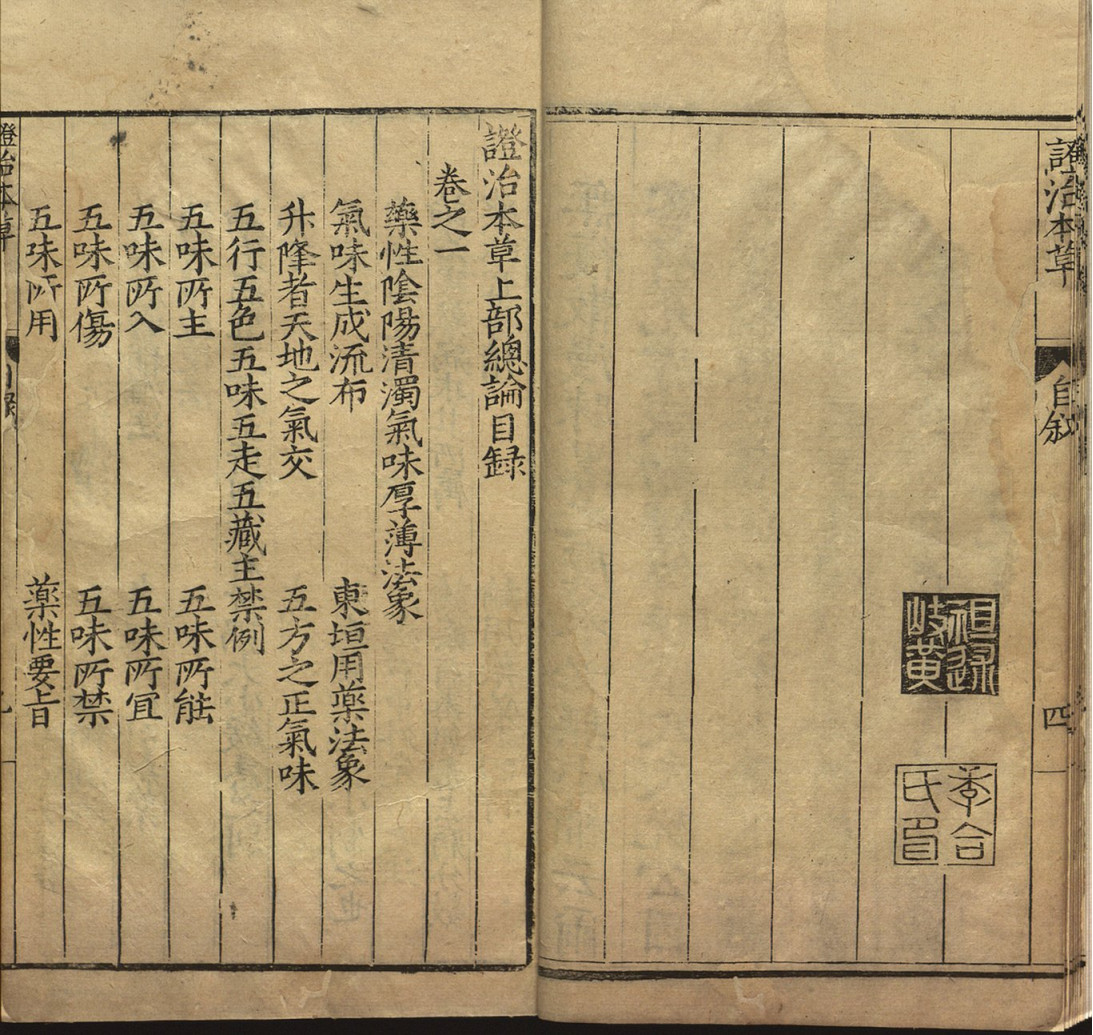 證治本草
自叙
四
岐黄
季合
氏
證治本草上部總論目録
卷之一
藥性陰陽清濁氣味厚薄法象
氣味生成流布　東垣用藥法象
升降者天地之氣交　五方之正氣味
五行五色五味五走五藏主禁例
五味所主　五味所能
五味所入　五味所宜
五味所傷　五味所禁
五味所用　藥性要旨
證治本草
目録